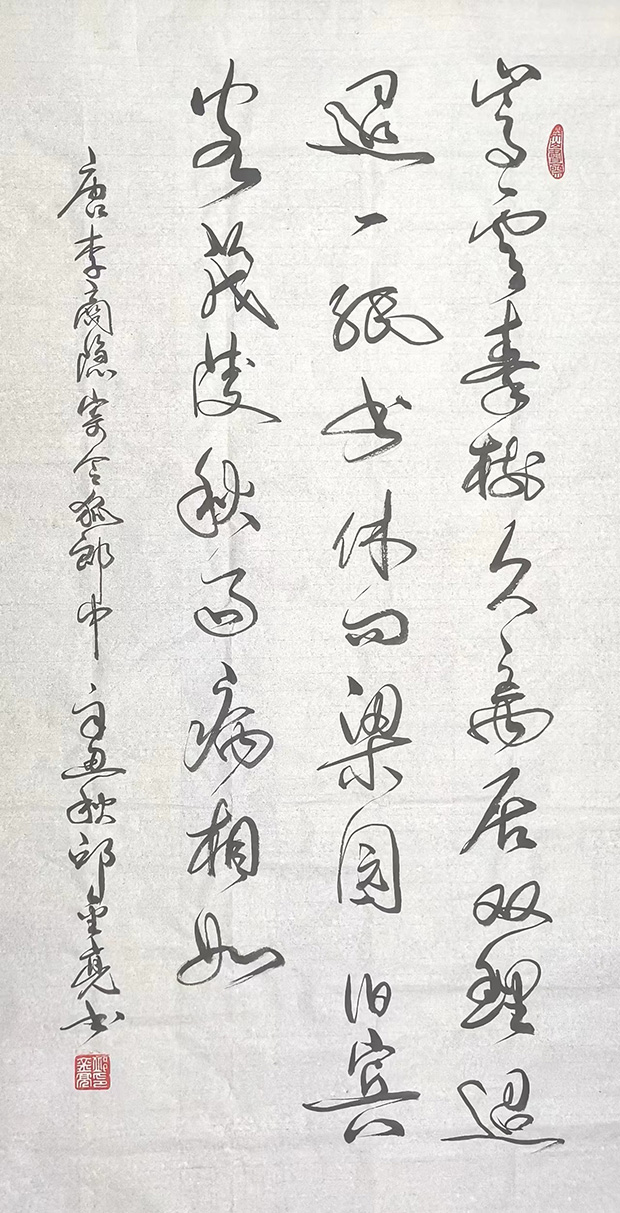 嵩雲秦树久離居双鲤迢
迢一纸书休问梁园旧宾
客茂陵秋雨病相如
唐李商隐寄令狐郎中 辛丑秋邱金亮书